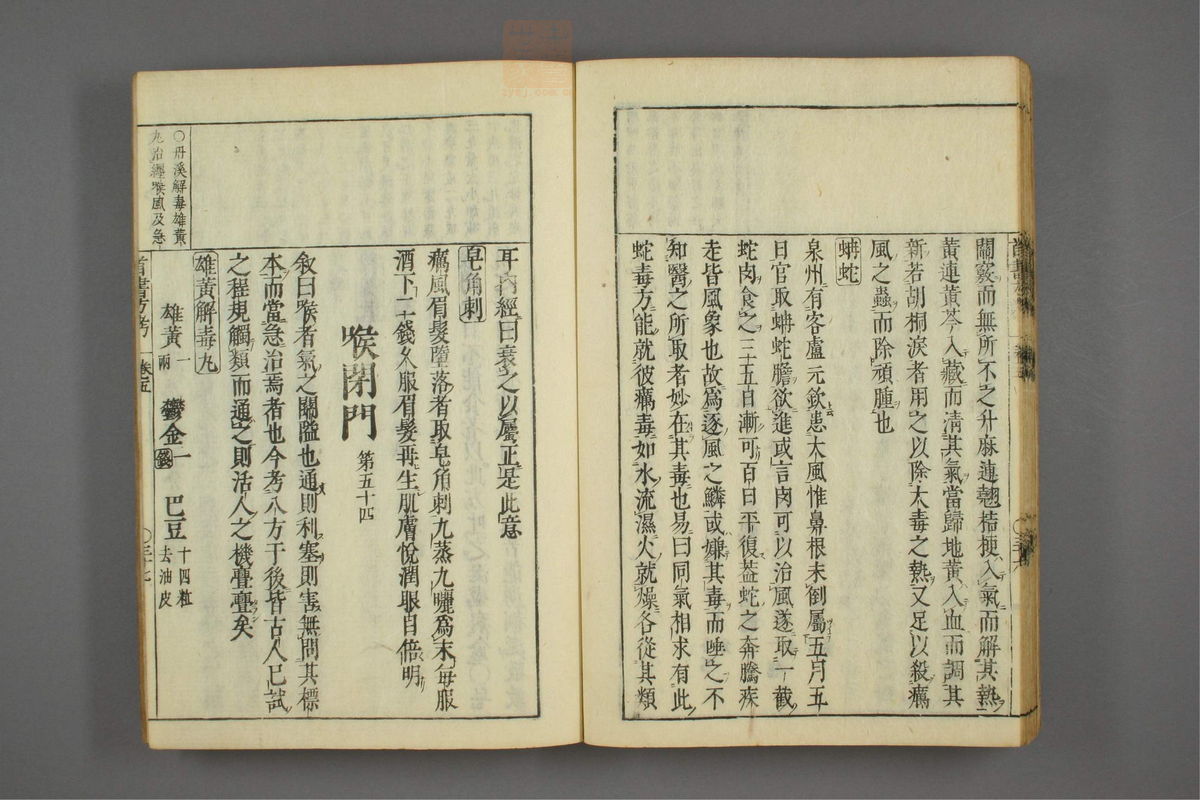 關竅而無所不之升麻連翹桔梗入氣而解其熱
黃連黃芩入藏而清其氣當歸地黃入血而調其
新若胡桐淚者用之以除大毒之熱又足以殺癘
風之蟲而除頑腫也
蝻蛇
泉州有客盧元欽患大風惟鼻根未倒屬五月五
日官取蝻蛇膽欲進或言肉可以治風遂取一截
蛇肉食之三十五日漸可百日平復蓋蛇之奔騰疾
走皆風象也故為逐風之鱗或嫌其毒而唾之不
知醫之所取者妙在其毒也易曰同氣相求有此
蛇毒方能就彼癘毒如水流濕火就燥各從其類
耳內經曰衰之以屬正是此意
皂角刺
癘風眉髮墮落者取皂角刺九蒸九曬為末每服
酒下二錢久服眉髮再生肌膚悅潤眼目倍明
喉閉門 第五十四
敘曰喉者氣之關隘也通則利塞則害無問其標
本而當急治焉者也今考八方于後皆古人已試
之程規觸類而通之則活人之機亹亹矣
雄黃解毒丸
○丹溪解毒雄黃
丸治纏喉風及急
雄黃一兩 鬱金一錢 巴豆十四粒去油皮
卷五
○三十七